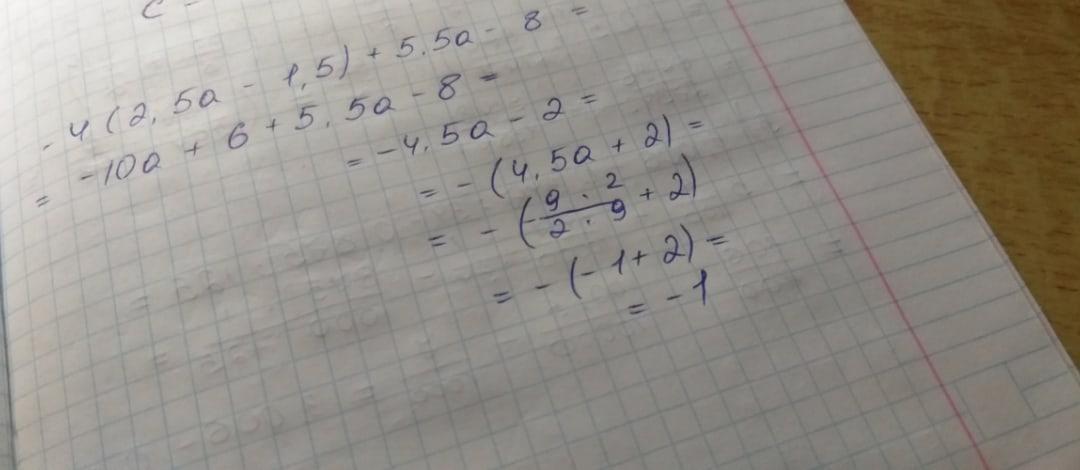 c -
- 4 (2,5a - 1,5) + 5.5a - 8 =
= -10a + 6 + 5,5a - 8 =
= -4.5a - 2 =
= - (4,5a + 2) =
= - (-\frac{9 · 2}{2 · 9} + 2)
= - (- 1 + 2) =
= - 1